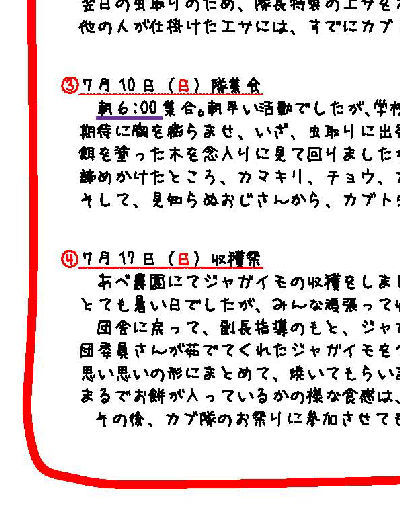 翌日の虫取りのため、隊長特製のエサを
他の人が仕掛けたエサには、すでにカブ
③7月10日（日）隊集会
朝6:00集合。朝早い活動でしたが、学校
期待に胸を膨らませ、いざ、虫取りに出
餌を塗った木を念入りに見て回りました
諦めかけたところ、カマキリ、チョウ、
そして、見知らぬおじさんから、カブト
④7月17日（日）収穫祭
あべ農園にてジャガイモの収穫をしま
とても暑い日でしたが、みんな頑張って
団舎に戻って、副長指導のもと、ジャ
団委員さんが茹でてくれたジャガイモを
思い思いの形にまとめて、焼いてもらい
まるでお餅が入っているかの様な食感は、
その後、カブ隊のお祭りに参加させても